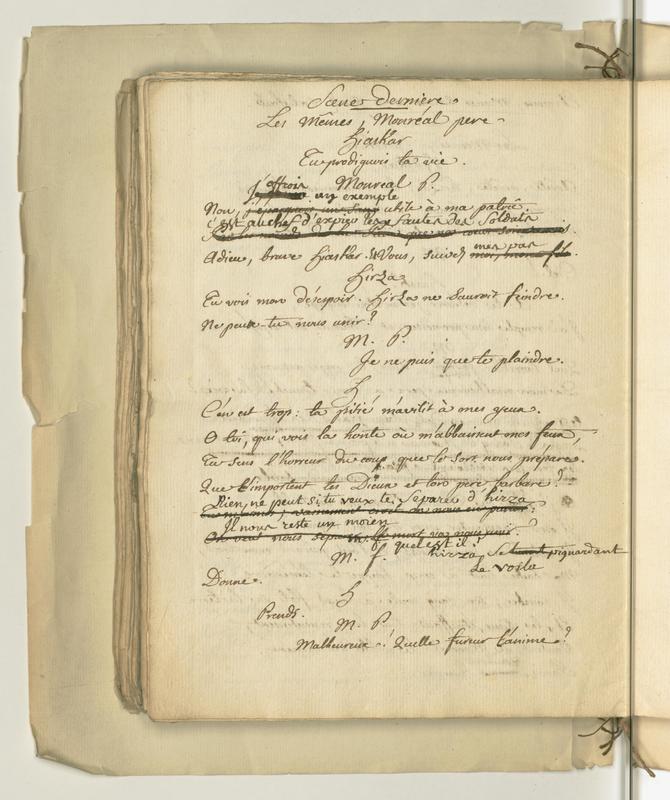 Scene derniere.
Les Mêmes, Monréal pere
hiaskar
Tu prodiguois ta vie.
Monreal P.
j'offrois un exemple
Non, utile à ma patrie.
c'est au chef d'expier les fautes des Soldats
Adieu, brave hiaskar. & Vous, suivez mes pas
hirza
Tu vois mon désespoir. hirza ne Sauroit feindre.
Ne peux-tu nous unir?
M. P.
Je ne puis que te plaindre.
h
C'en est trop: ta pitié m'avilit à mes yeux.
O toi, qui vois la honte où m'abbaissent mes feux,
Tu sens l'horreur du coup que le Sort nous prépare.
Que t'importent les Dieux et ton pere barbare?
Rien, ne peut si tu veux te Separer d'hirza
Il nous reste un moien
M. f. quel est il?
hirza, Se poignardant
Le voila
Donne.
h
Prends.
M. P.
Malheureux! Quelle fureur t'anime?